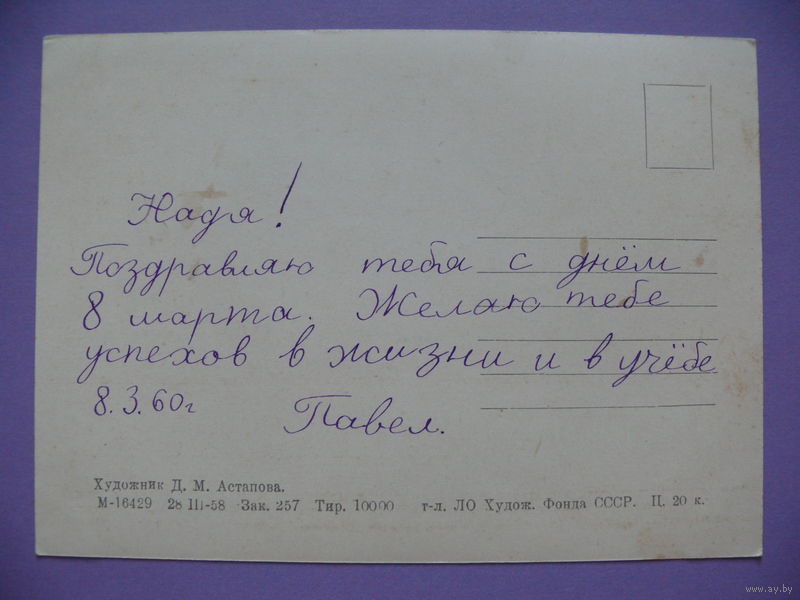 Надя!
Поздравляю тебя с днём
8 марта. Желаю тебе
успехов в жизни и в учёбе
8.3.60г Павел.
Художник Д. М. Астапова.
М-16429 28 III-58 Зак. 257 Тир. 10000 т-л. ЛО Худож. Фонда СССР. Ц. 20 к.
www.ay.by